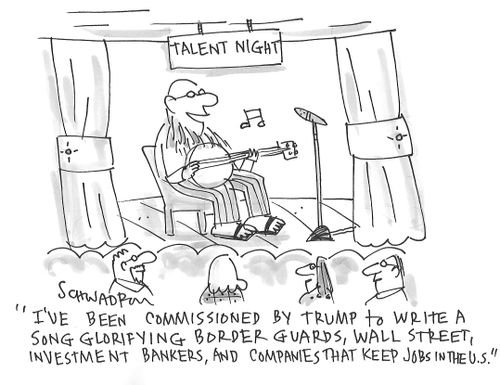 TALENT NIGHT
SCHWADRON
"I'VE BEEN COMMISSIONED BY TRUMP to WRITE A
SONG GLORIFYING BORDER GUARDS, WALL STREET,
INVESTMENT BANKERS, AND COMPANIES THAT KEEP JOBS IN THE U.S."